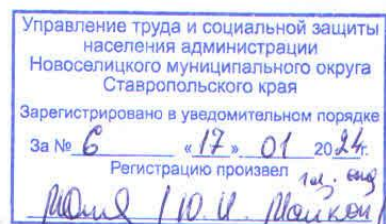 Управление труда и социальной защиты
населения администрации
Новоселицкого муниципального округа
Ставропольского края
Зарегистрировано в уведомительном порядке
За № 6 «17» 01 2024г.
Регистрацию произвел
Ю.И.